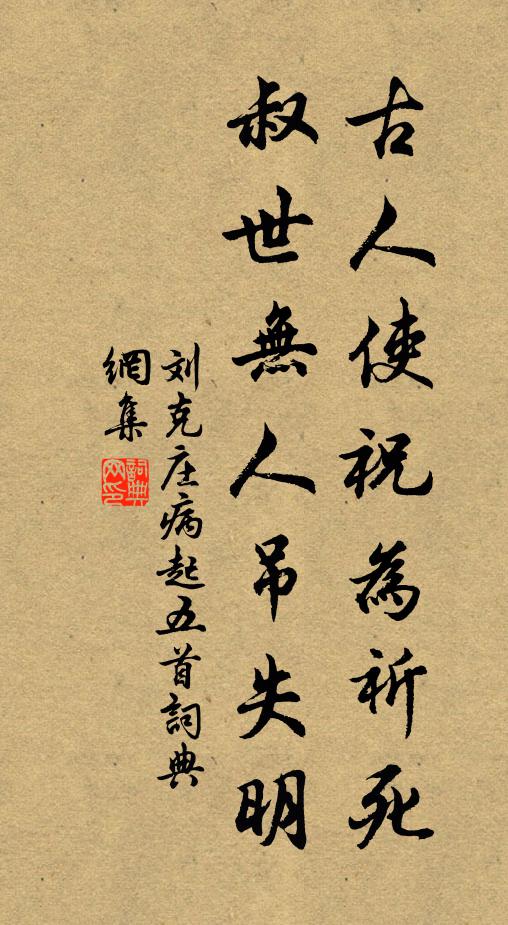 古人使祝為祈死
叔世無人吊失明
刘克庄病起五首詞典
網集
詞典
网印